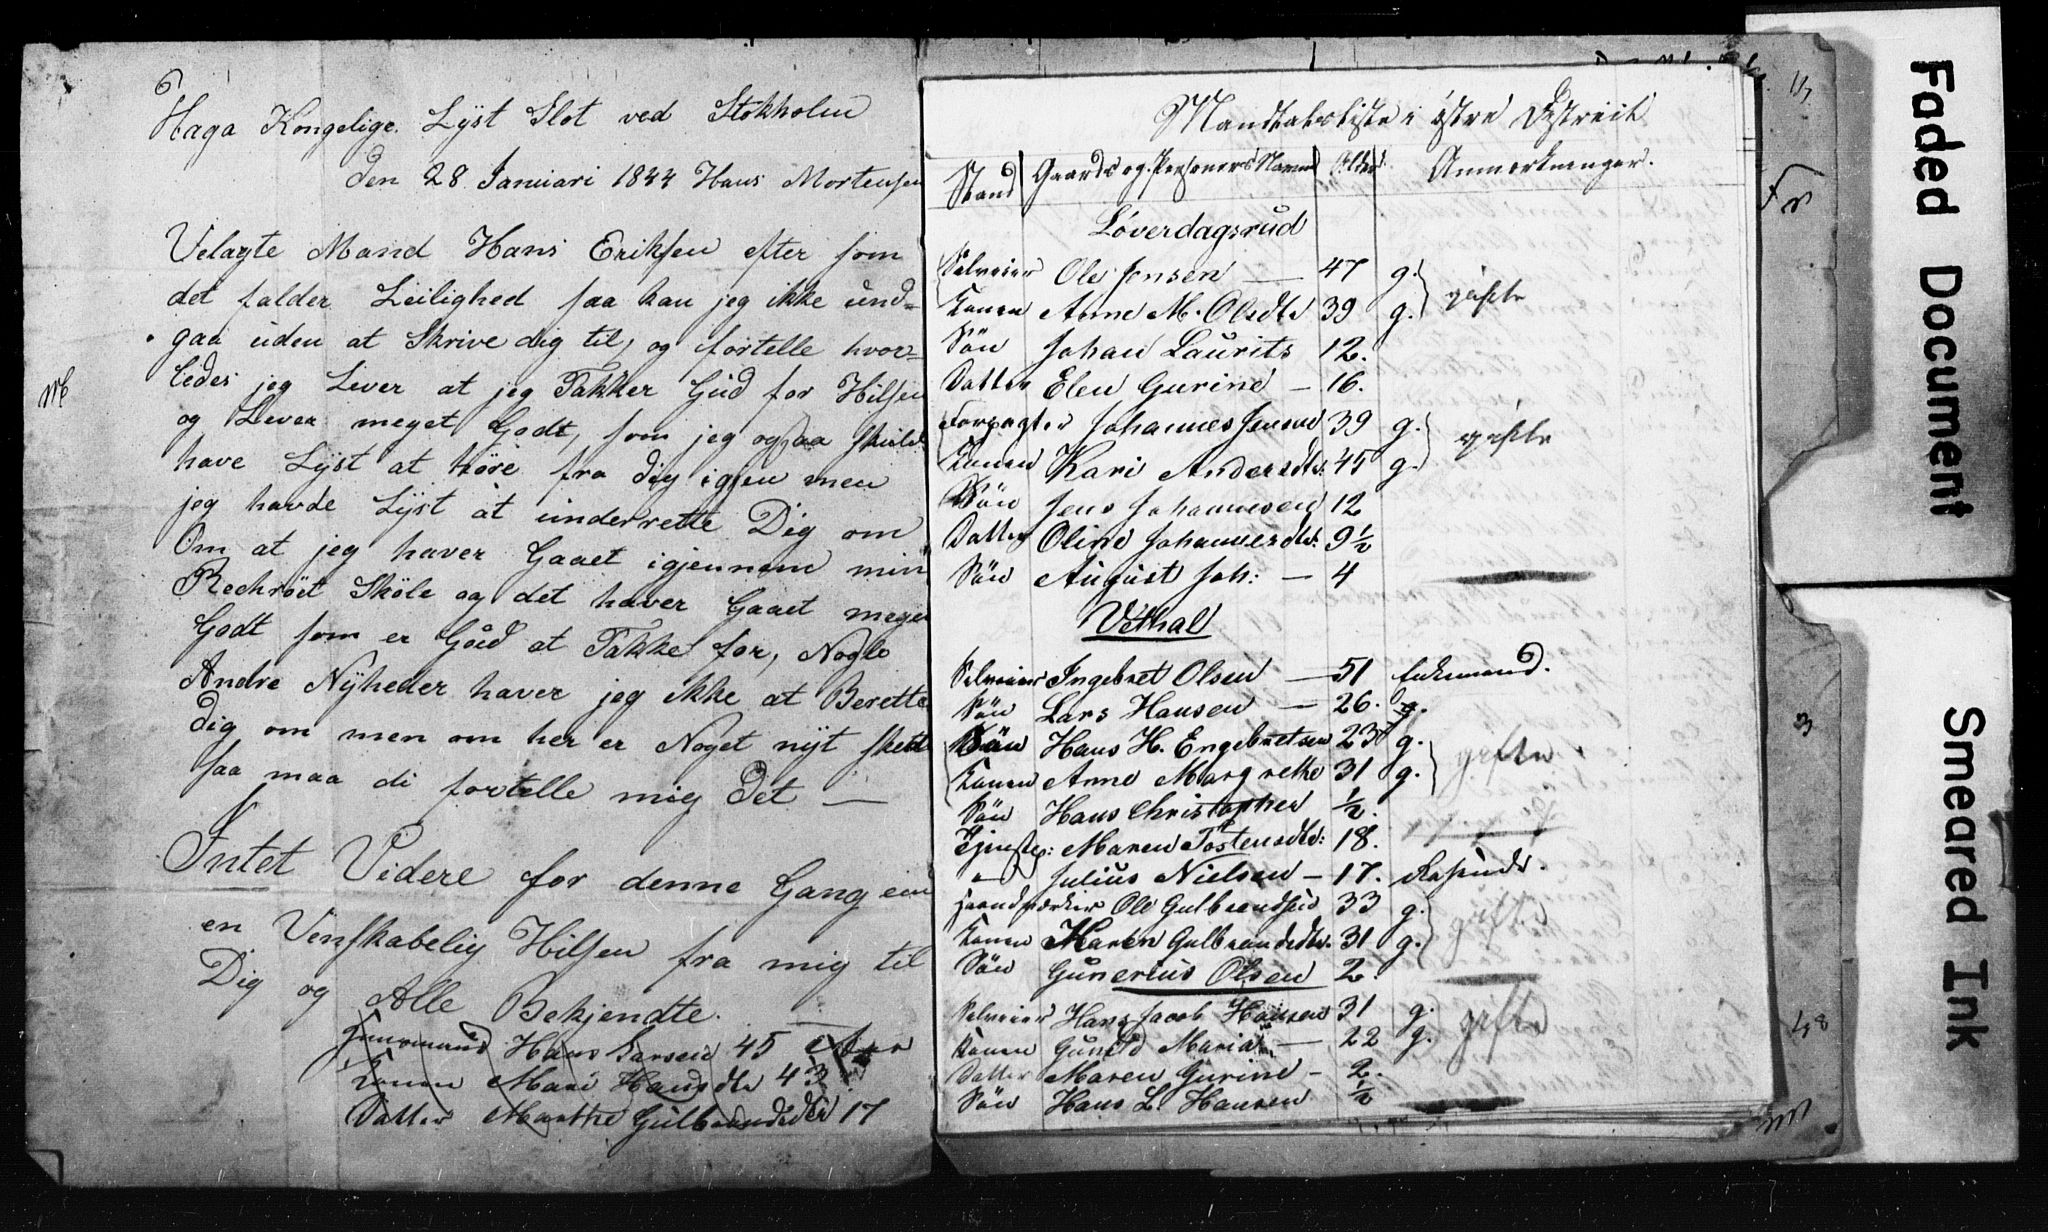 Haga Kongelige Lyst Slot ved Stokholm
den 28 Januari 1844 Hans Mortensen
Velagte Mand Hans Eriksen efter som
det falder Leilighed saa kan jeg ikke und=
gaa uden at Skrive dig til, og fortelle hvor=
ledes jeg Lever at jeg Takker Gud for Hilsen
og Lever meget Godt, som jeg ogsaa skulde
have Lyst at höre fra dig igjen men
jeg havde Lyst at underrette Dig om
Om at jeg haver Gaaet igjennem min
Rechröet Skole og det haver Gaaet meget
Godt som er Gud at Takke for, Nogle
Andre Nyheder haver jeg ikke at Berette
Dig om men om her er Noget nyt skedt
saa maa di fortelle mig Det —
Intet Videre for denne Gang end
en Venskabelig Hilsen fra mig til
Dig og Alle Bekjendte.
Hans Larsen 45
Konen Mari Hansdtr 43
Datter Marthe Gulbrandsdtr 17
Mandtalsliste i östre Distreit
Stand Gaards og Personers Navne Alder Anmerkninger.
Löverdagsrud
Selveier Ole Jensen — 47 g.
Konen Anne M. Olsdtr 39 g. gifte
Sön Johan Laurits 12.
Datter Elen Gurine — 16.
Forpagter Johannes Jensen 39 g.
Konen Kari Andersdtr: 45 g. gifte
Sön Jens Johannesen 12
Datter Oline Johannesdtr: 9 1/2
Sön August Joh: — 4
Vethal
Selveier Ingebret Olsen — 51 Enkemand.
Sön Lars Hansen — 26. g.
Sön Hans H. Engebretsen 23 g.
Konen Anne Margrethe 31 g. gifte
Sön Hans Christopher 1/2.
Tjeneste: Maren Tostensdtr: 18.
— Julius Nielsen — 17.
Haandværker Ole Gulbrandsen 33 g.
Konen Maren Gulbrandsdtr. 31 g. gifte
Sön Gunerius Olsen 2.
Selveier Hans Jacob Hansen 31 g.
Konen Gunild Maria — 22 g. gifte
Datter Maren Gurine — 2.
Sön Hans L. Hansen 1/2
Faded Document
Smeared Ink